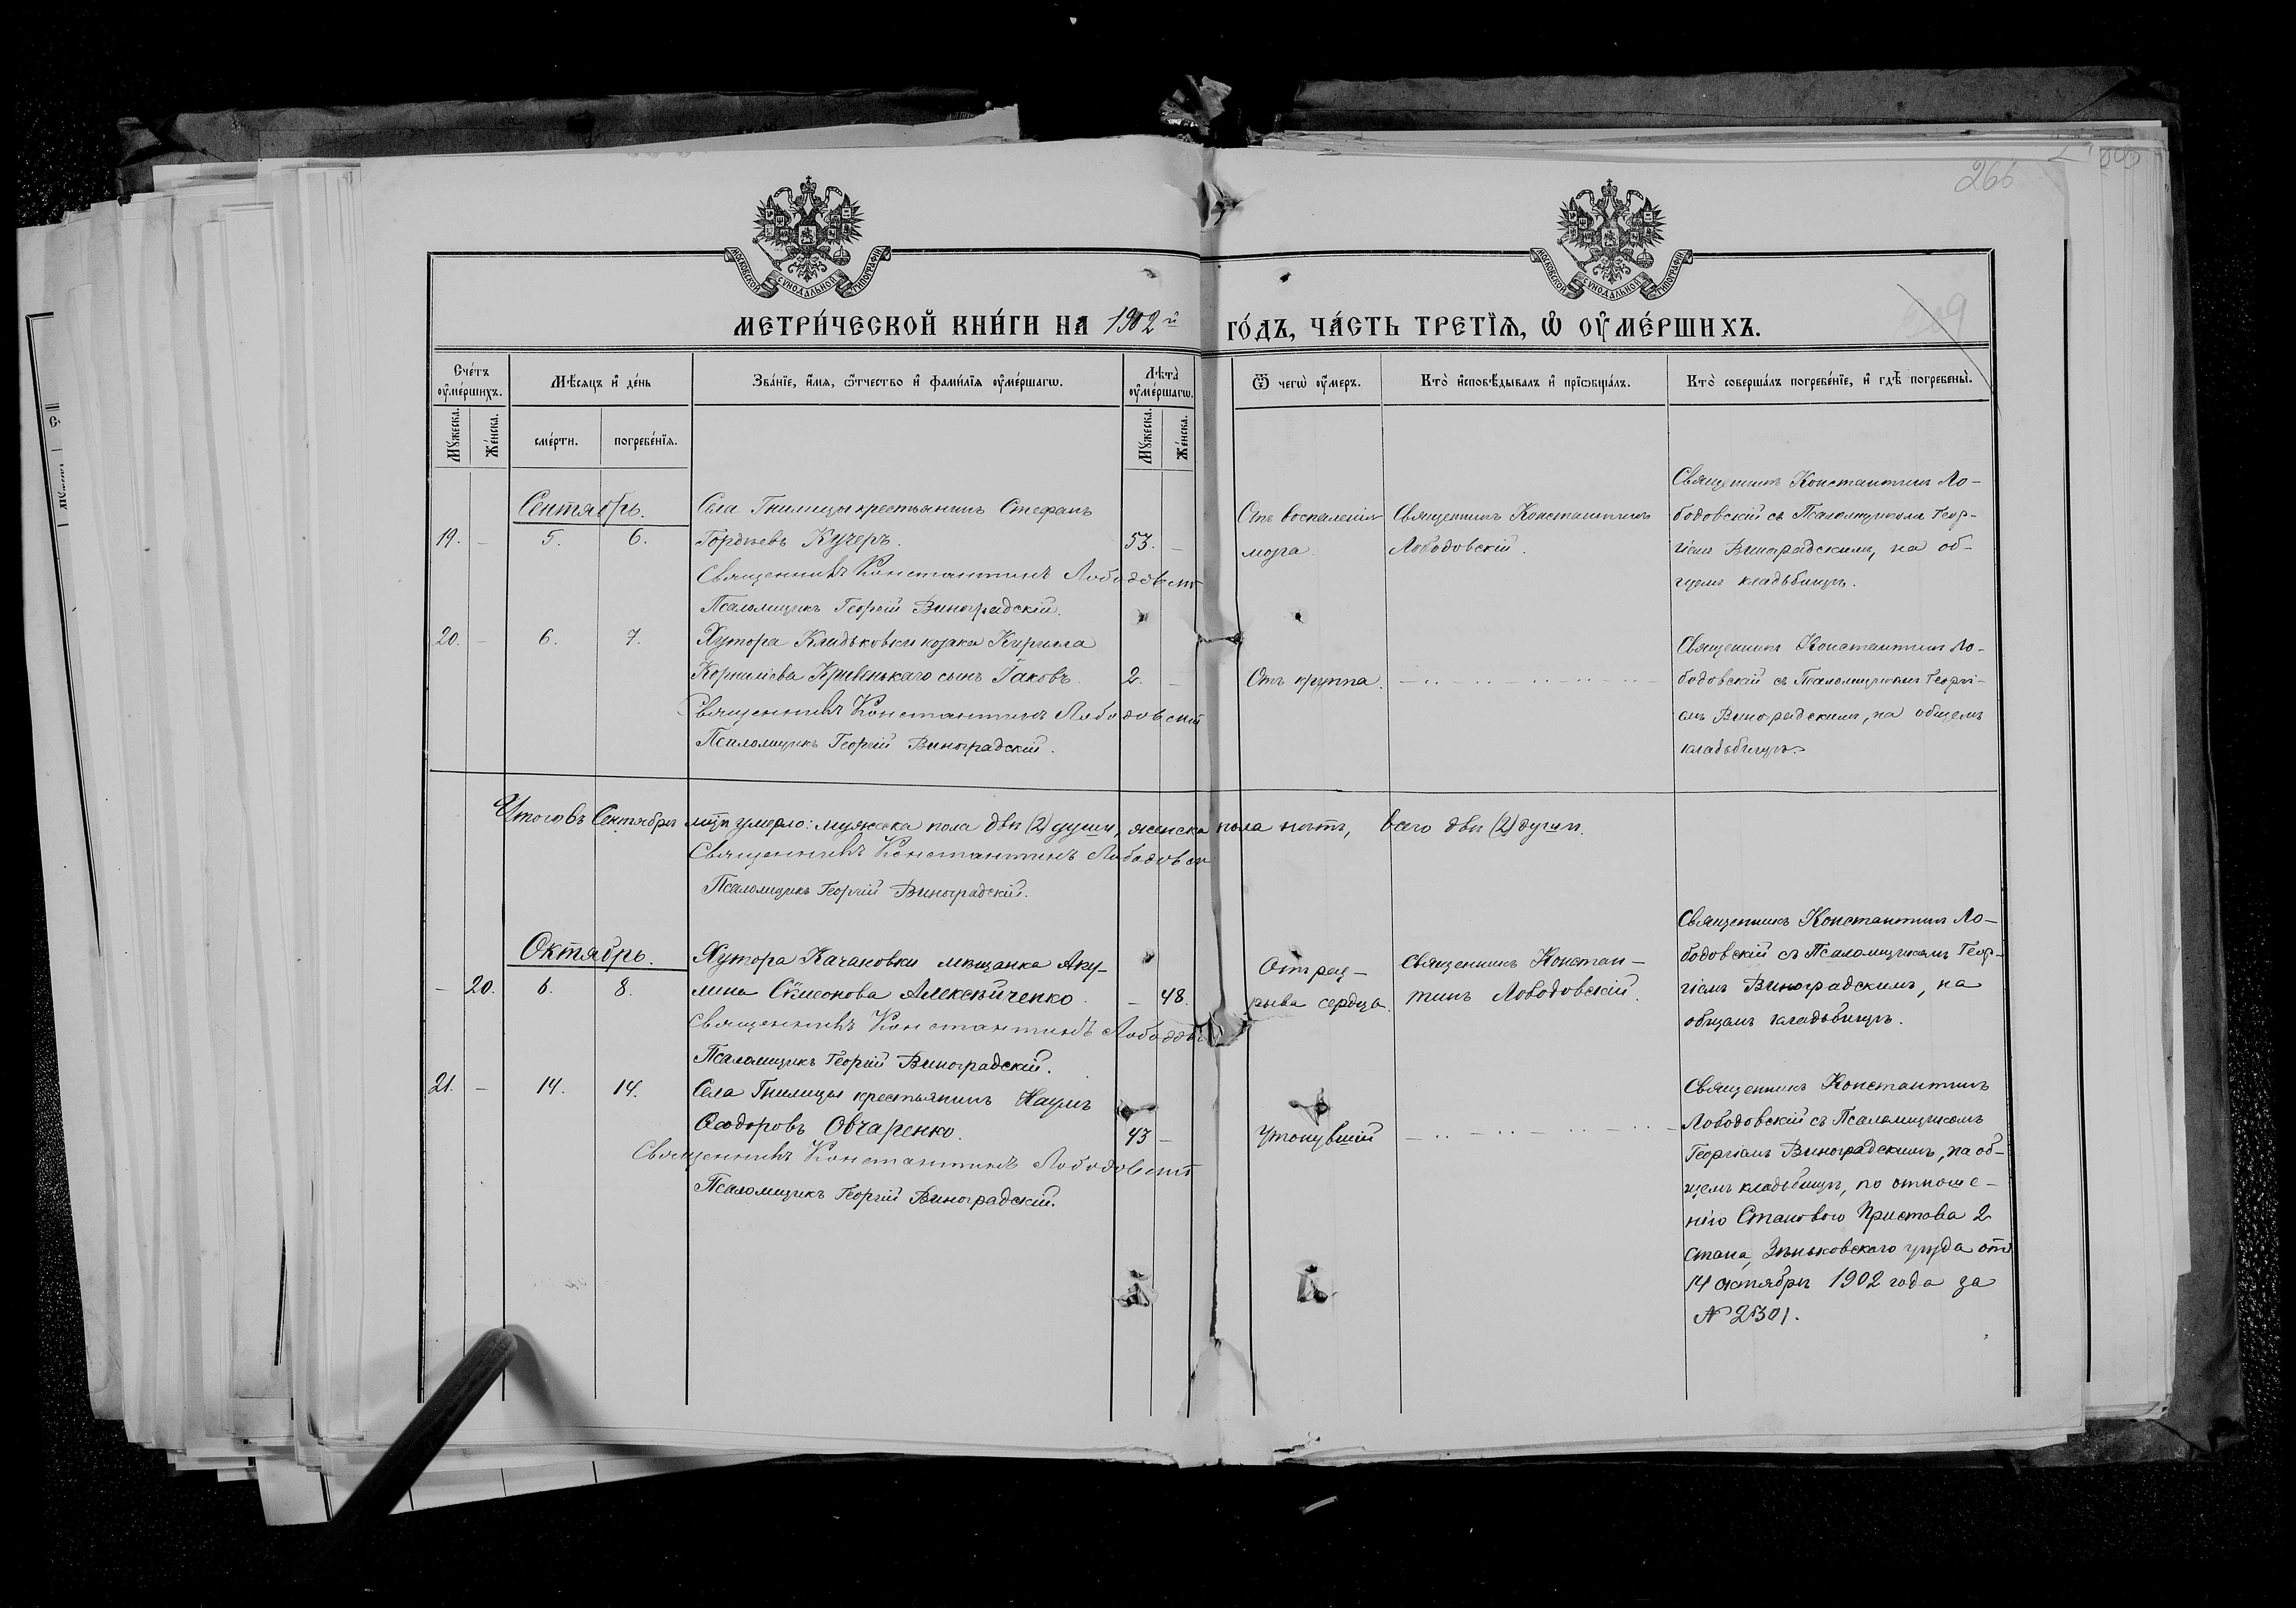 266
МОСКОВСКОЙ СУНОДАЛЬНОЙ ТИПОГРАФІИ
МОСКОВСКОЙ СУНОДАЛЬНОЙ ТИПОГРАФІИ
МЕТРИ́ЧЕСКОЙ КНИ́ГИ НА 1902й ГО́ДЪ, ЧА́СТЬ ТРЕТІѦ, Ѡ ОУ҆МЕ́РШИХЪ.
Сче́тъ оу҆ме́ршихъ.
Мꙋ́жеска.
Же́нска.
Мѣ́сяцъ и҆ де́нь
сме́рти.
погребе́нїѧ.
Зва́нїе, и҆́мѧ, ѻ҆́тчество и҆ фами́лїѧ оу҆ме́ршагѡ.
Лѣ́та оу҆ме́ршагѡ.
Мꙋ́жеска.
Же́нска.
Ѿ чегѡ̀ оу҆́меръ.
Кто̀ и҆сповѣ́дывалъ и҆ прїѡбща́лъ.
Кто̀ соверша́лъ погребе́нїе, и҆ гдѣ̀ погребены̀.
Сентябрь.
19. – 5. 6.
Села Гнилицы крестьянинъ Стефанъ
Гордѣевъ Кучеръ. 53. –
Священникъ Константинъ Лободовскій
Псаломщикъ Георгій Виноградскій.
Отъ воспаленія
мозга.
Священникъ Константинъ
Лободовскій.
Священникъ Константинъ Ло-
бодовскій съ Псаломщикомъ Геор-
гіемъ Виноградскимъ, на об-
щемъ кладбищѣ.
20. – 6. 7.
Хутора Кладьковки козака Кирилла
Корниліева Кривенькаго сынъ Іаковъ. 2. –
Священникъ Константинъ Лободовскій
Псаломщикъ Георгій Виноградскій.
Отъ круппа.
Священникъ Константинъ Ло-
бодовскій съ Псаломщикомъ Георгі-
емъ Виноградскимъ, на общемъ
кладьбищѣ.
Итого въ Сентябрѣ мцѣ умерло: мужеска пола двѣ (2) души, женска пола нѣтъ, всего двѣ (2) души.
Священникъ Константинъ Лободовскій
Псаломщикъ Георгій Виноградскій.
Октябрь.
– 20. 6. 8.
Хутора Качановки мѣщанка Аку-
лина Сѵмеонова Алексѣйченко. – 48.
Священникъ Константинъ Лободовскій
Псаломщикъ Георгій Виноградскій.
Отъ раз-
рыва сердца.
Священникъ Констан-
тинъ Лободовскій.
Священникъ Константинъ Ло-
бодовскій съ Псаломщикомъ Геор-
гіемъ Виноградскимъ, на
общемъ кладьбищѣ.
21. – 14. 14.
Села Гнилицы крестьянинъ Наумъ
Ѳеодоровъ Овчаренко. 43 –
Священникъ Константинъ Лободовскій
Псаломщикъ Георгій Виноградскій.
Утонувшій
Священникъ Константинъ
Лободовскій съ Псаломщикомъ
Георгіемъ Виноградскимъ, на об-
щемъ кладьбищѣ, по отноше-
нію Становаго Пристава 2
стана, Зѣньковскаго уѣзда отъ
14 октября 1902 года за
№ 2301.